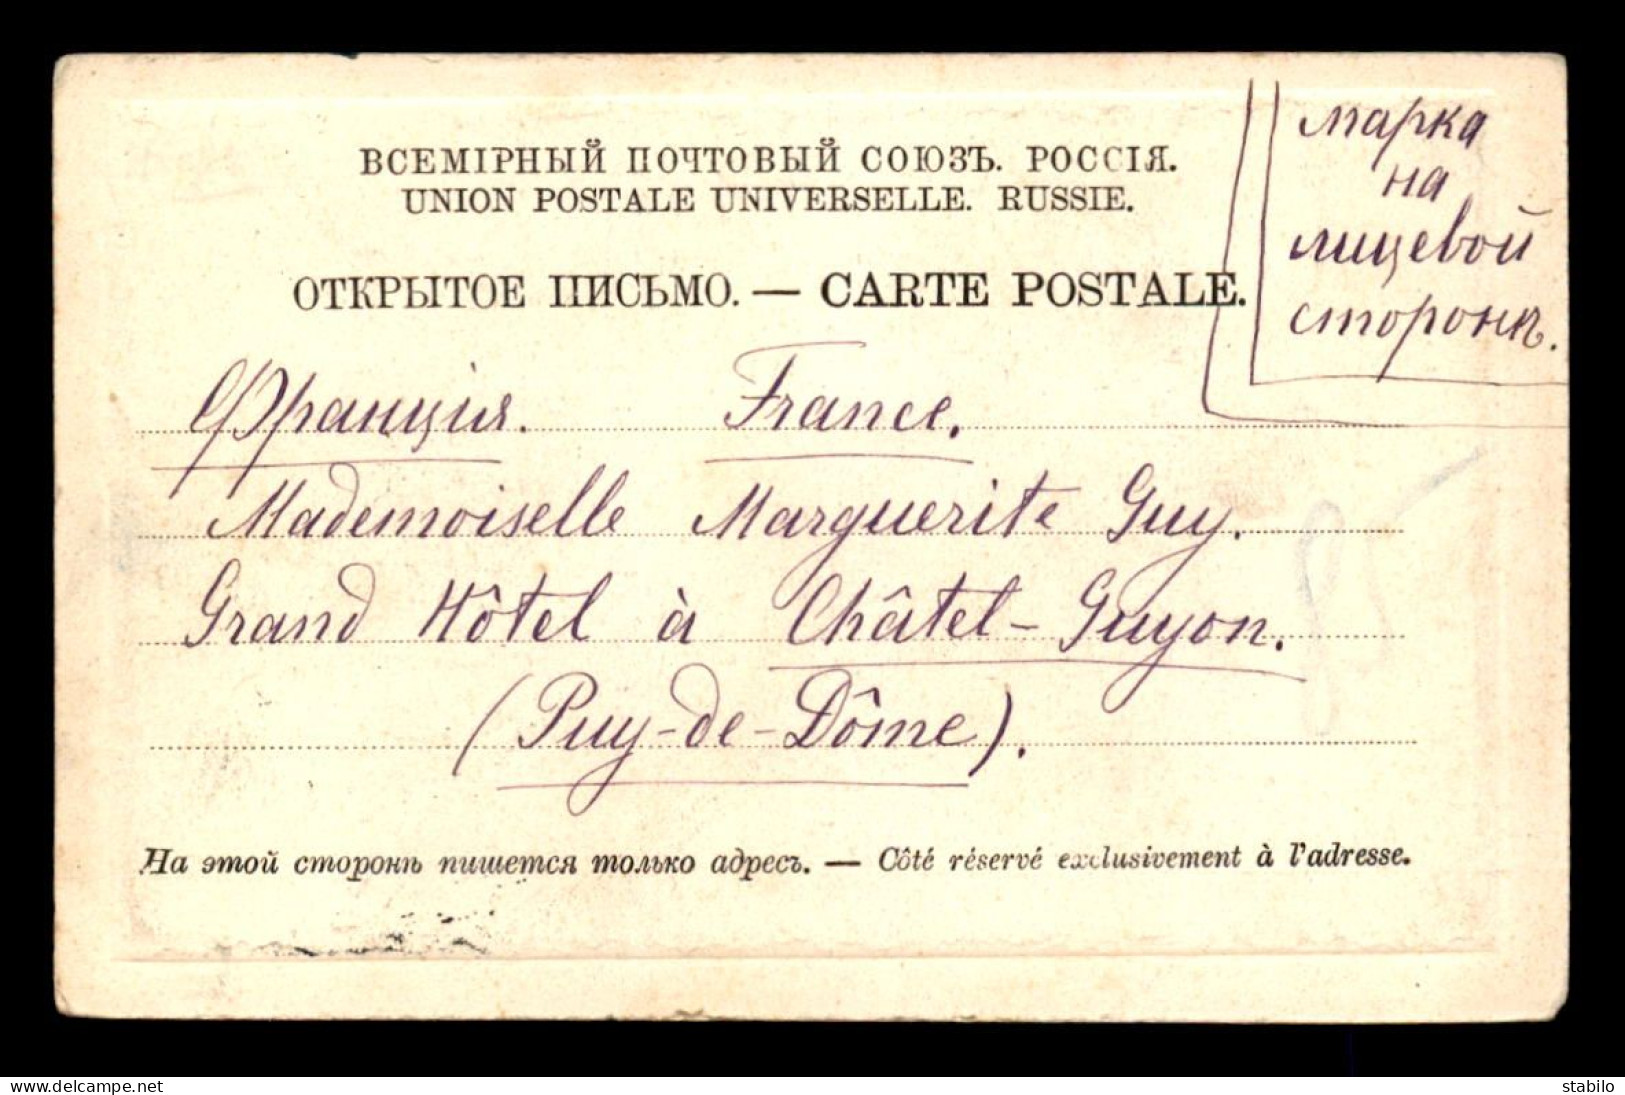 ВСЕМІРНЫЙ ПОЧТОВЫЙ СОЮЗЪ. РОССІЯ.
UNION POSTALE UNIVERSELLE. RUSSIE.
ОТКРЫТОЕ ПИСЬМО. — CARTE POSTALE.
марка
на
лицевой
сторонѣ.
Франція. France.
Mademoiselle Marguerite Guy.
Grand Hôtel à Châtel-Guyon.
(Puy-de-Dôme).
На этой сторонѣ пишется только адресъ. — Côté réservé exclusivement à l'adresse.
www.delcampe.net
stabilo